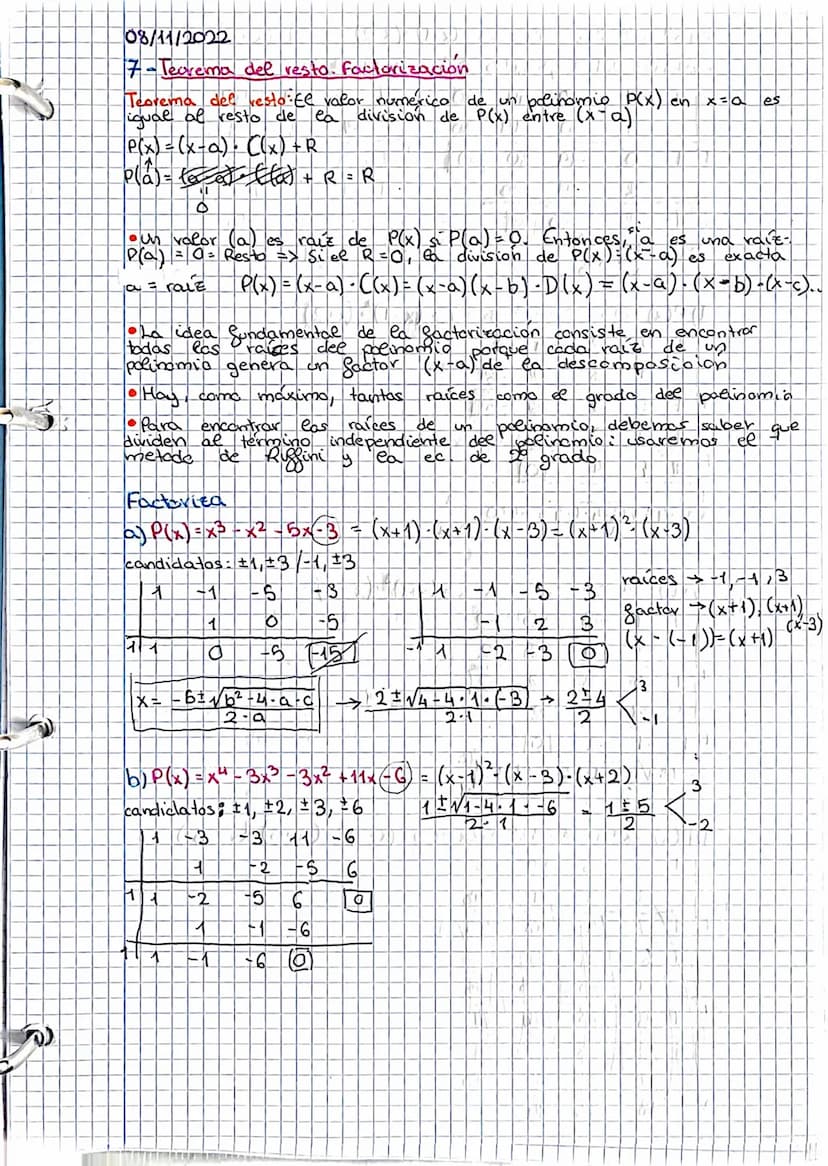 08/11/2022
7-Teorema del resto. Factorización
Teorema del resto: El valor numérico de un polinomio P(x) en x=a es
igual al resto de la división de P(x) entre (x-a)
P(x)=(x-a)· C(x)+R
P(a)= (a-a)·C(a) + R = R
0
• Un valor (a) es raíz de P(x) si P(a)=0. Entonces, si a es una raíz.
P(a) = 0 = Resto => Si el R=0, la división de P(x):(x-a) es exacta
a = raíz P(x)=(x-a)·C(x)=(x-a)(x-b)·D(x)=(x-a)·(x-b)·(x-c)...
• La idea fundamental de la factorización consiste en encontrar
todas las raíces del polinomio porque cada raíz de un
polinomio genera un factor (x-a) de la descomposición
• Hay, como máximo, tantas raíces como el grado del polinomio
• Para encontrar las raíces de un polinomio, debemos saber que
dividen al término independiente del polinomio: usaremos el
metodo de Ruffini y la ec. de 2º grado
Factoriza
a) P(x)=x³-x²-5x-3 = (x+1)·(x+1)·(x-3)=(x+1)²·(x-3)
candidatos: ±1,±3/-1,±3
1 -1 -5 -3
1 0 -5
1 1 0 -5 -15
1 -1 -5 -3
-1 2 3
-1 1 -2 -3 0
raíces → -1,-1,3
factor →(x+1),(x+1)
(x-3)
(x-(-1))=(x+1)
x= -b±√b²-4·a·c / 2·a → 2±√4-4·1·(-3) / 2·1 → 2±4 / 2 < 3 -1
b) P(x)=x⁴-3x³-3x²+11x-6 = (x-1)²·(x-3)·(x+2)
candidatos: ±1, ±2, ±3, ±6
1±√1-4·1·-6 / 2·1 = 1±5 / 2 < 3 -2
1 -3 -3 11 -6
1 -2 -5 6
1 1 -2 -5 6 0
1 -1 -6
1 1 -1 -6 0